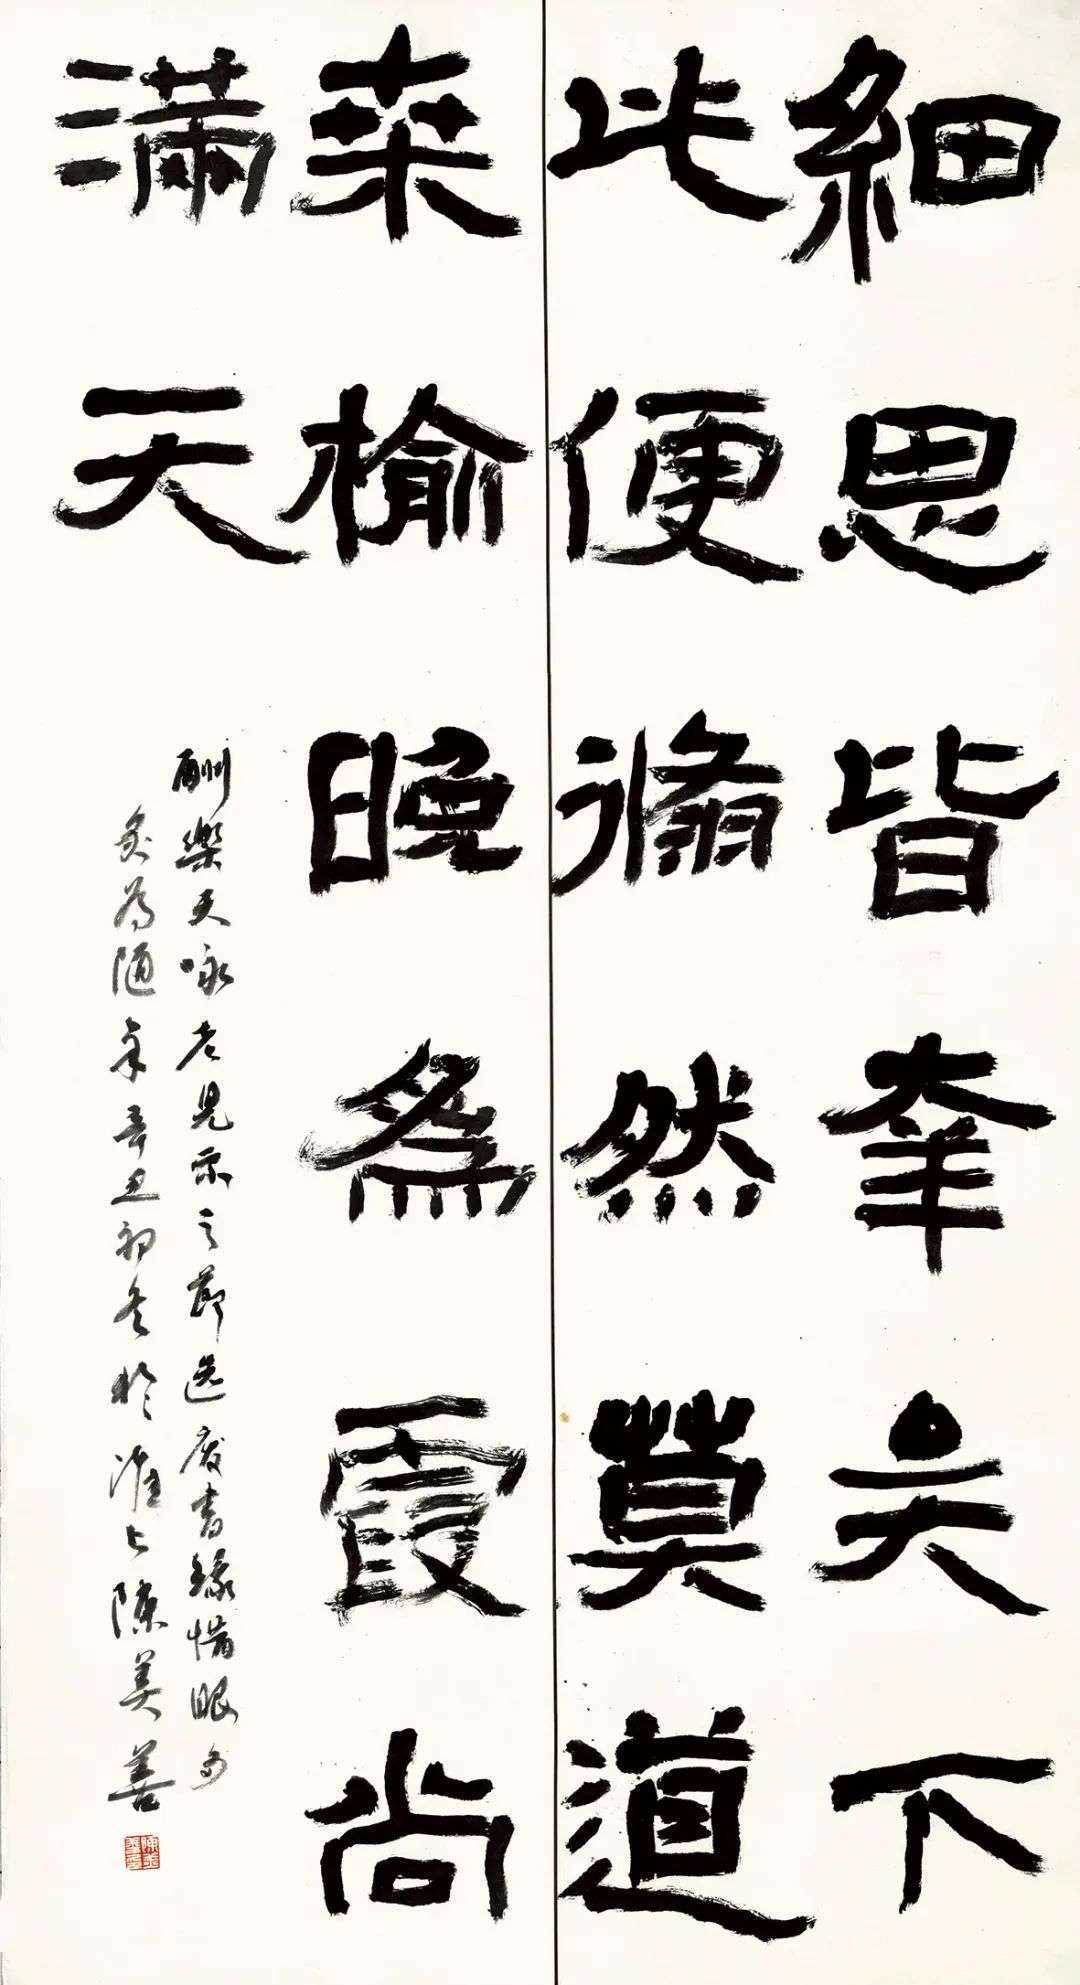 細思皆幸矣下
此便翛然莫道
桒榆晚為霞尚
滿天
酬樂天咏老見示之節選廢書緣惜眼多
灸為隨年辛丑初冬於淮上陳美善